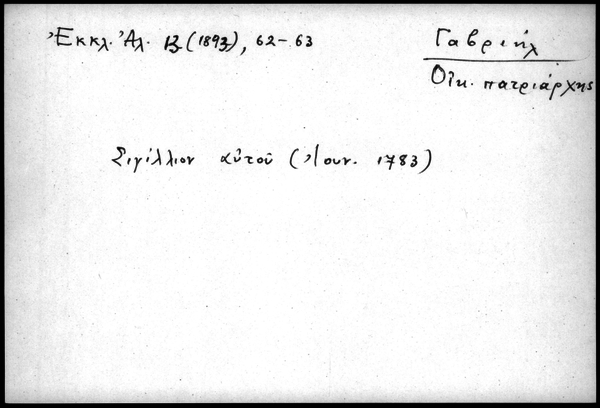 Ἐκκλ. Ἀλ. 13 (1893), 62-63
Γαβριήλ
Οἰκ. πατριάρχης
Σιγίλλιον αὐτοῦ (Ἰουν. 1783)